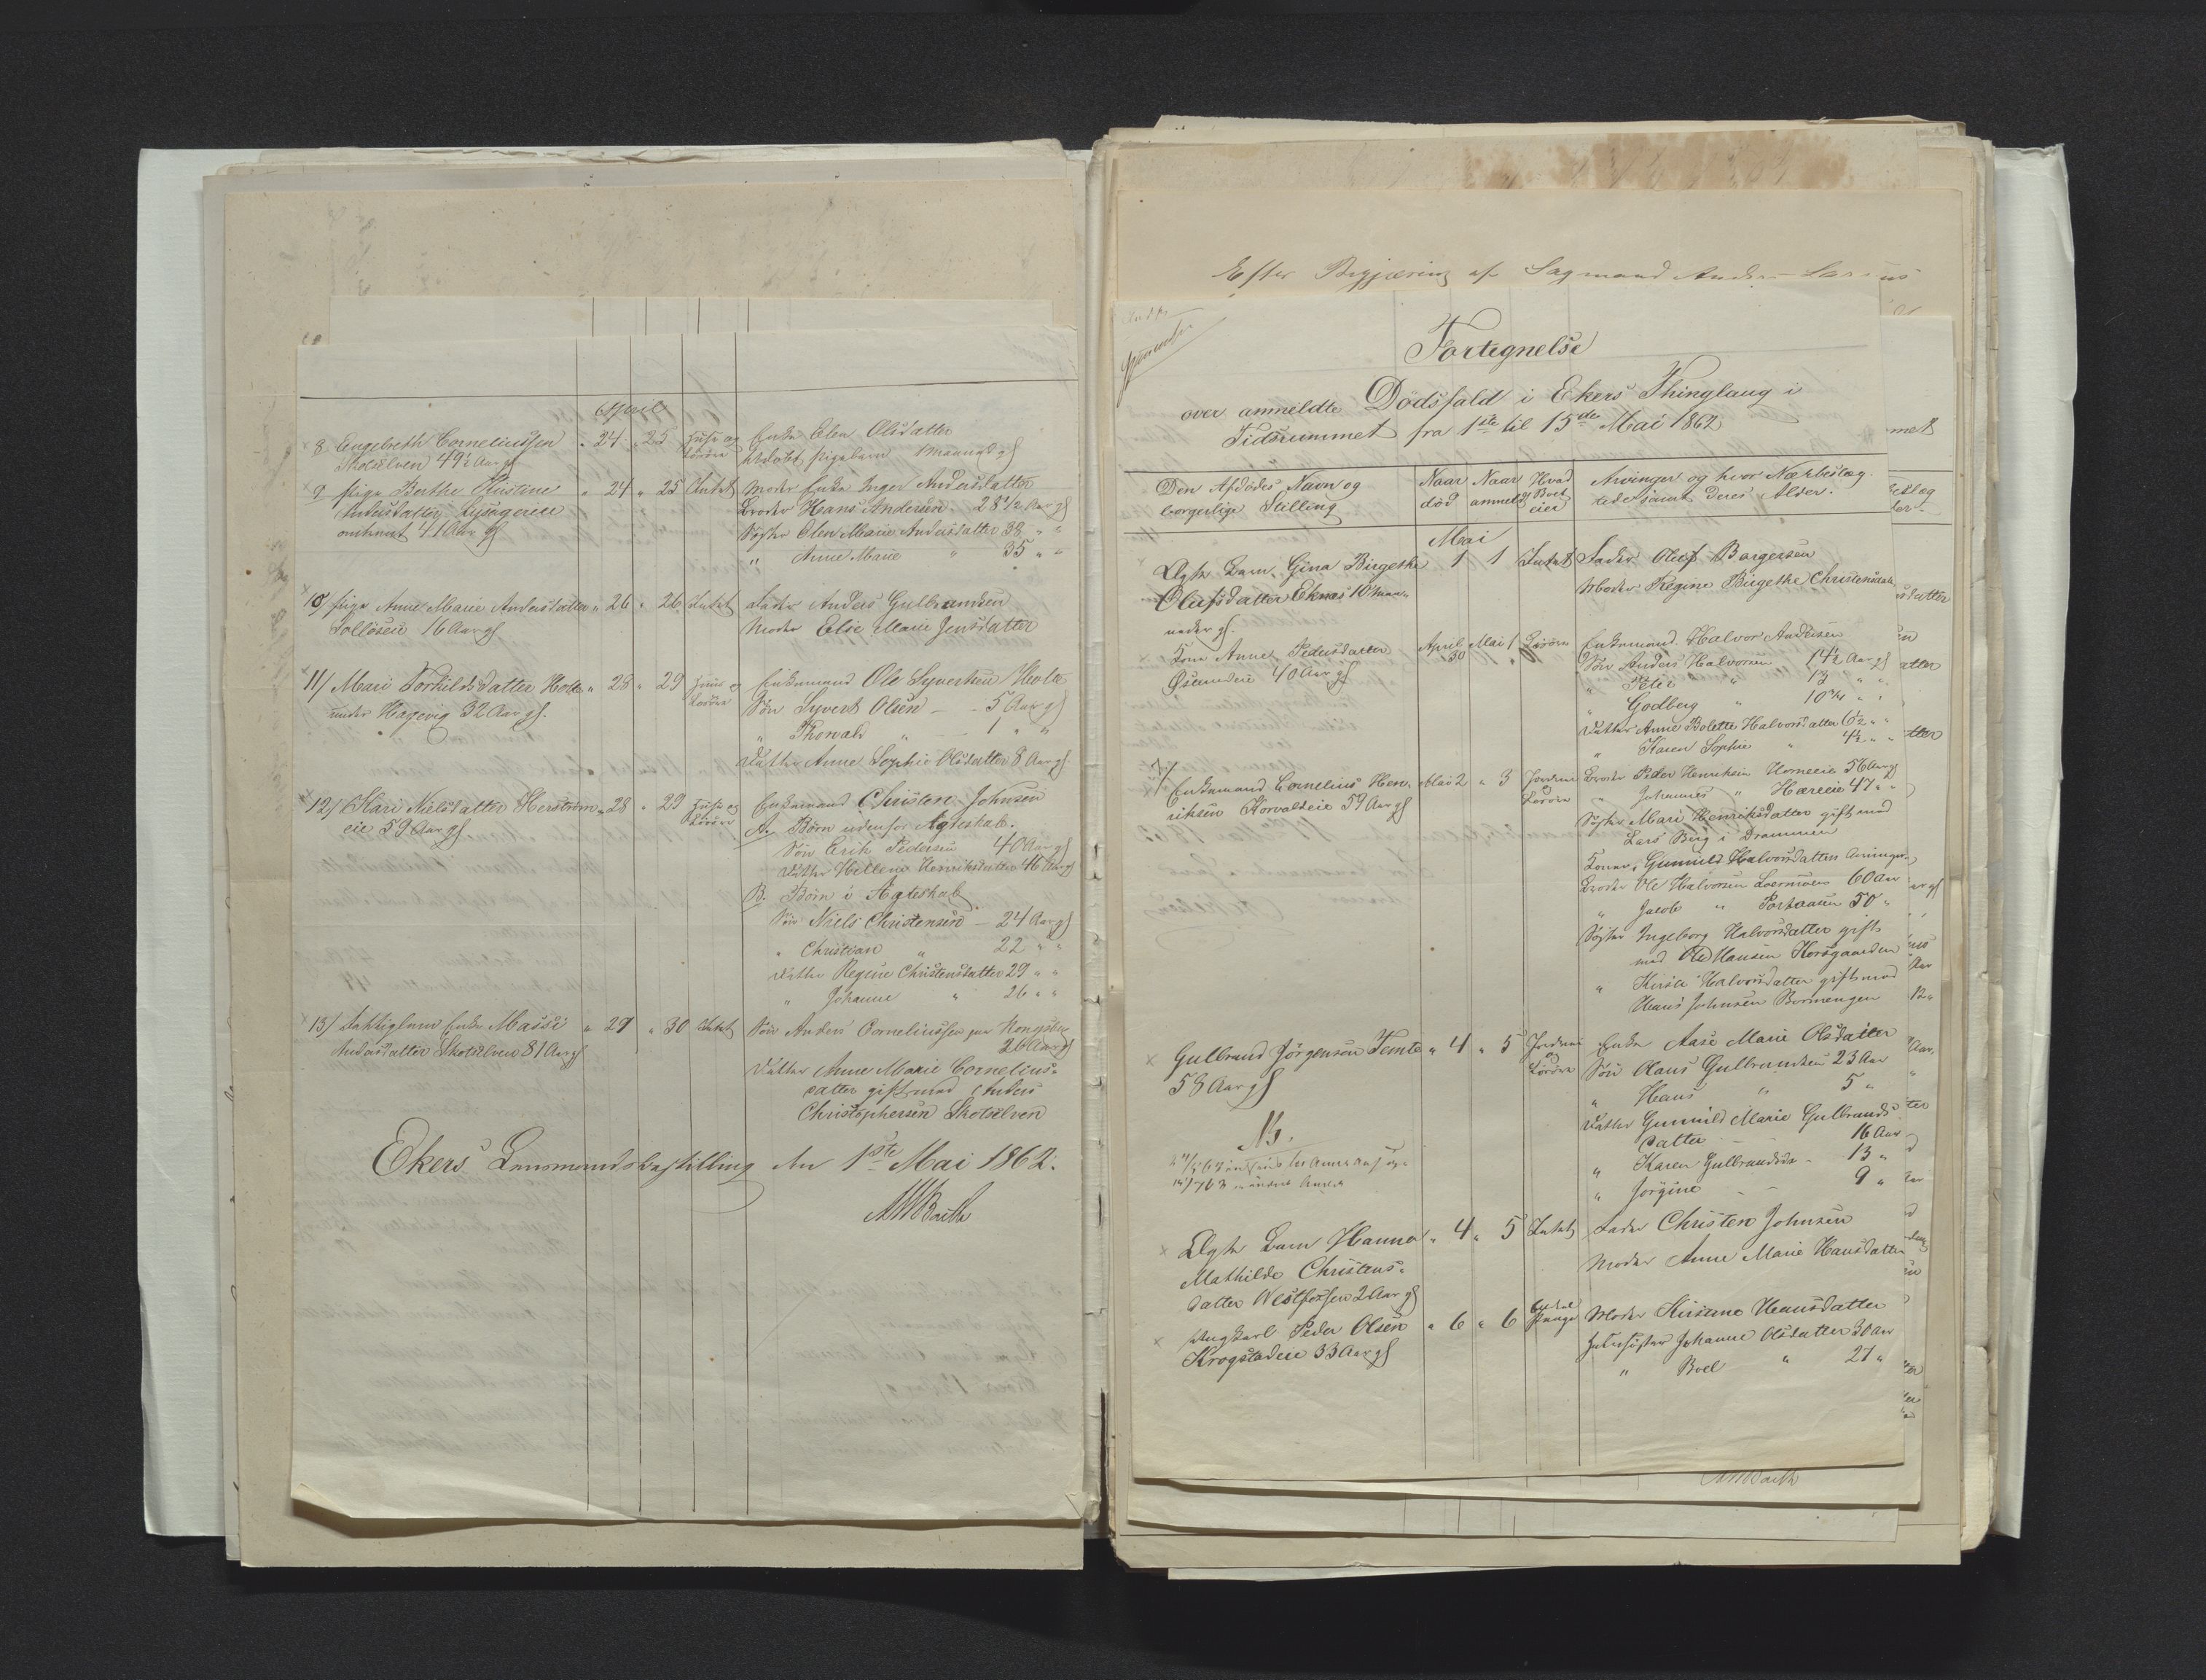 April
8 Engelbreth Corneliussen " 24 " 25 Huse og Enke Elen Olsdatter
Skotselven 49½ Aar gl Løsøre udøbt Pigebarn 1 Maaned gl
9 Pige Berthe Kristine " 24 " 25 Intet Moder Enke Inger Andersdatter
Andersdatter Broder Hans Andersen 28½ Aar gl
omtrent 41 Aar gl Søster Elen Marie Andersdatter 38 " "
" Anne Marie " 35 " "
10/ Pige Anne Marie Andersdatter " 26 " 26 Intet Fader Anders Gulbrandsen
16 Aar gl Moder Else Marie Jensdatter
11/ Mari Torkildsdatter Holte " 28 " 29 Huus og Enkemand Ole Syvertsen Holte
under Hagevig 32 Aar gl. Løsøre Søn Syvert Olsen — 5 Aar gl
" Thorvald " — 1 " "
Datter Anne Sophie Olsdatter 8 Aar gl
12/ Kari Nielsdatter Herstrøm- " 28 " 29 Huse og Enkemand Christen Johnsen
eie 59 Aar gl Løsøre A. Børn udenfor Ægteskab.
Søn Erik Pedersen 40 Aar gl
Datter Hellene Henriksdatter 46 Aar gl
B. Børn i Ægteskab
Søn Niels Christensen — 24 Aar gl
" Christian " 22 " "
Datter Regine Christensdatter 29 " "
" Johanne " 26 " "
13/ Fattiglem Enke Massi " 29 " 30 Intet Søn Anders Corneliussen paa Kongsberg
Andersdatter Skotselven 81 Aar gl 26 Aar gl
Datter Anne Marie Cornelius-
datter gift med Anders
Christophersen Skotselven
Ekers Lensmandsbestilling den 1ste Mai 1862.
Efter Begjæring af Sagmand Anders Larsens
Fortegnelse
over anmeldte Dødsfald i Ekers Thinglaug i
Tidsrummet fra 1ste til 15de Mai 1862
Den Afdødes Navn og Naar Naar Hvad Arvinger og hvor Nærbeslæg-
borgerlige Stilling død anmeldt Boet eier tede samt deres Alder.
Mai
Ægte Barn Gina Birgethe 1 1 Intet Fader Oluf Borgersen
Olufsdatter Eknes 10 Maa- Moder Regine Birgethe Christensdatter
neder gl.
Kone Anne Pedersdatter April 30 Mai 1 Løsøre Enkemand Halvor Andersen
40 Aar gl Søn Anders Halvorsen 14½ Aar gl
" Peter " 13 " "
" Godberg " 10¾ " "
Datter Anne Bolette Halvorsdatter 6½ " "
" Karen Sophie " 4½ " "
Enkemand Cornelius Hen- Mai 2 " 3 Jordeiendom Løsøre Broder Peder Henriksen Horneeie 56 Aar gl
riksen Korvaldeie 59 Aar gl " Johannes " Hæreeie 47 " "
Søster Mari Henriksdatter gift med
Lars Berg i Drammen
Konen, Gunild Halvorsdatters Arvinger
Broder Ole Halvorsen Loesmoen 60 Aar
" Jacob " 50 "
Søster Ingeborg Halvorsdatter gift
med Ole Hansen Korsgaarden
" Kirsti Halvorsdatter gift med
Hans Johnsen Bermengen
Gulbrand Jørgensen Temte " 4 " 5 og Løsøre Enke Aase Marie Olsdatter
58 Aar gl Søn Olaus Gulbrandsen 23 Aar
" Hans " 5 "
Datter Gunild Marie Gulbrands-
datter — 16 Aar
" Karen Gulbrandsdr - 13 "
" Jørgine — 9 "
Nb.
Ægte Barn Hanna " 4 " 5 Intet Fader Christen Johnsen
Mathilde Christens- Moder Anne Marie Hansdatter
datter Westfossen 2 Aar gl
Ungkarl Peder Olsen " 6 " 6 Endeel Penge Moder Kirstine Hansdatter
Krogstadeie 33 Aar gl Johanne Olsdatter 30 Aar
" Boel " 27 "